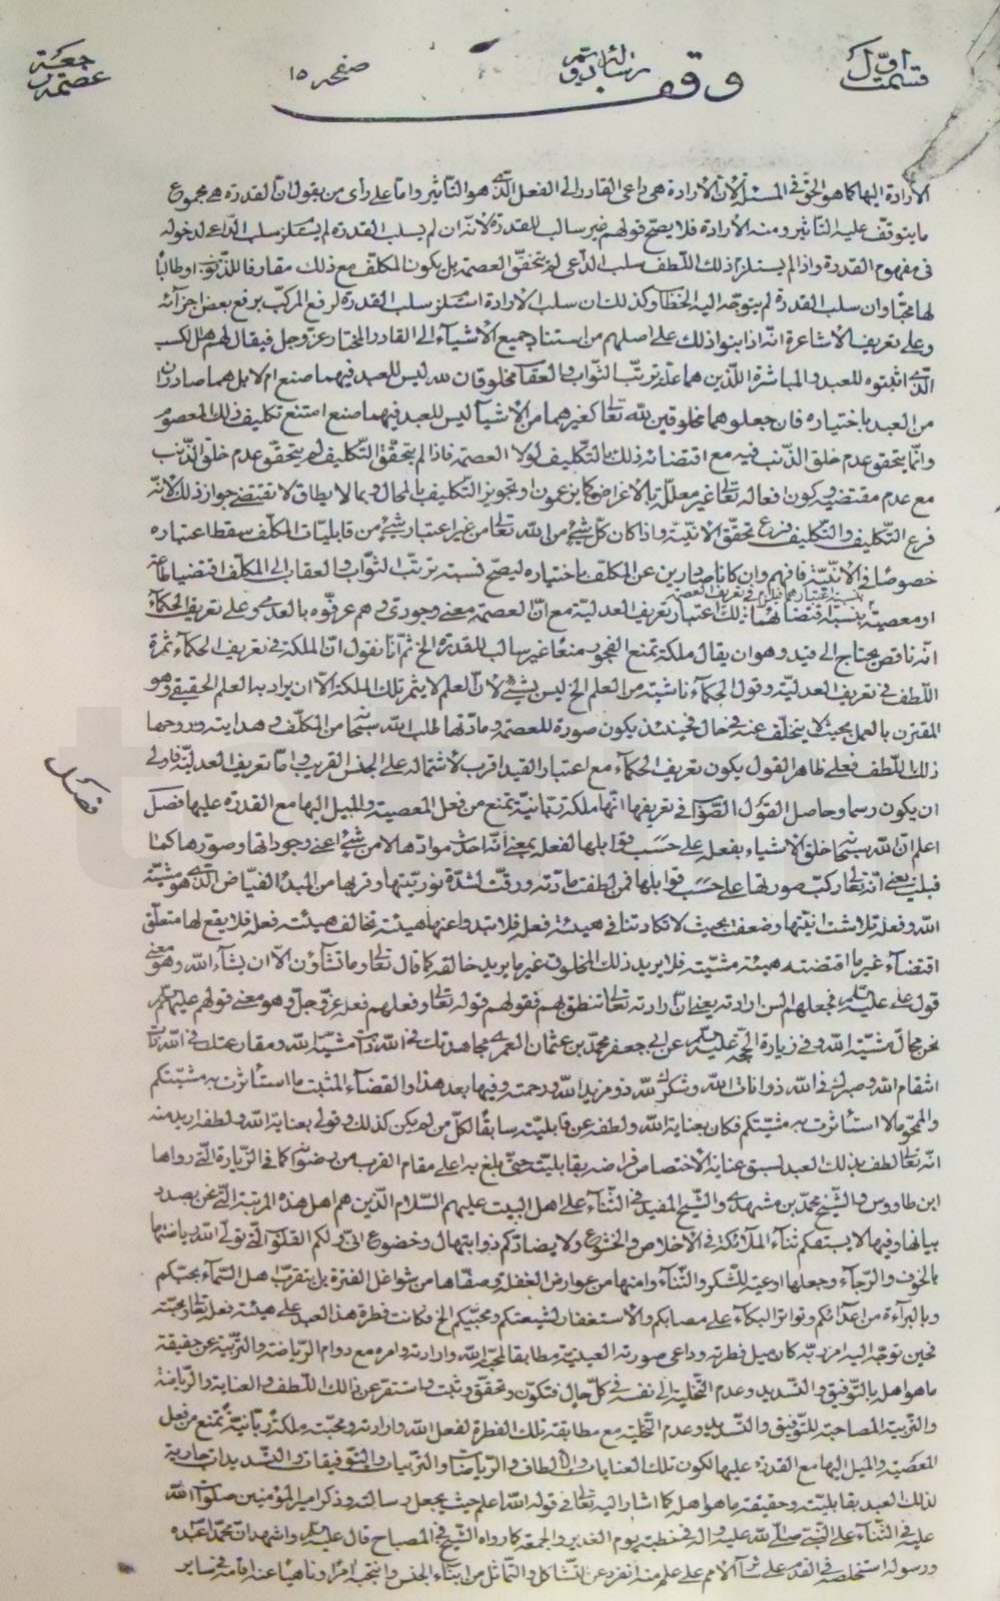 قسمت اول
رسالة دویم
وقف
صفحه ١٥
جعه
عصمة
الأرادة اليها كما هو الحق فى المسئلة لان الارادة هى داعى القادر الى الفعل الذى هو التأثير واما على رأى من يقول ان القدرة هى مجموع
ما يتوقف عليه التأثير ومنه الأرادة فلا يصح قولهم غير سالب للقدرة لانه ان لم يسلب القدرة لم يستلزم سلب الداعى لدخوله
فى مفهوم القدرة واذا لم يستلزم ذلك اللطف سلب الداعى لم يتحقق العصمة بل يكون المكلف مع ذلك مقارفا للذنوب او طالباً
لها محبا وان سلب القدرة لم يتوجه اليه الخطاب وكذلك ان سلب الارادة استلزم سلب القدرة لرفع المركب برفع بعض اجزائه
وعلى تعريف الأشاعرة انه اذا بنوا ذلك على اصلهم من استناد جميع الأشياء الى القادر المختار عز وجل فيقال لهم هل الكسب
الذى اثبتوه للعبد والمباشرة اللذين هما علة ترتب الثواب والعقاب مخلوقان لله ليس للعبد فيهما صنع ام لا بل هما صادران
من العبد باختياره فان جعلوهما مخلوقين لله تعالى كغيرهما من الأشياء ليس للعبد فيهما صنع امتنع تكليف ذلك المعصوم
وانما يتحقق عدم خلق الذنب فيه مع اقتضائه ذلك بالتكليف لولا العصمة فاذا لم يتحقق التكليف لم يتحقق عدم خلق الذنب
مع عدم مقتضيه وكون افعاله تعالى غير معللة بالاغراض كما يزعمون او تجويز التكليف بالمحال وبما لا يطاق لا تقتضى جواز ذلك لانه
فرع التكليف والتكليف فرع تحقق الانية واذا كان كل شىء من الله تعالى من غير اعتبار شىء من قابليات المكلف سقط اعتباره
خصوصا فى الانية فافهم وان كانا صادرين عن المكلف باختياره ليصح نسبة ترتب الثواب والعقاب الى المكلف اقتضيا طاعة
او معصية بنسبة اقتضائهما
اعتبار تعريف العدلية مع ان العصمة معنى وجودى وهم عرفوه بالعدمى وعلى تعريف الحكماء
انه ناقص يحتاج الى قيد وهو ان يقال ملكة تمنع الفجور منعا غير سالب للقدرة الخ ثم انا نقول ان الملكة فى تعريف الحكماء ثمرة
اللطف فى تعريف العدلية وقول الحكماء ناشئة من العلم الخ ليس بشىء لان العلم لا يثمر تلك الملكة الا ان يراد به العلم الحقيقى وهو
المقترن بالعمل بحيث لا يتخلف عنه فى حال فحينئذ يكون صورة للعصمة ومادتها طلب الله سبحانه من المكلف وهدايته وروحها
ذلك اللطف فعلى ظاهر القول يكون تعريف الحكماء مع اعتبار القيد اقرب لاشتماله على الجنس القريب واما تعريف العدلية فاولى
ان يكون رسما وحاصل القول الصواب فى تعريفها انها ملكة ربانية تمنع من فعل المعصية والميل اليها مع القدرة عليها فصل
فصل
اعلم ان الله سبحانه خلق الاشياء بفعله على حسب قوابلها لفعله بمعنى انه احدث موادها لا من شىء اعنى وجوداتها وصورها كما
قبلت يعنى انه تعالى ركب صورتها على حسب قوابلها فمن لطفت مادته ورقت لشدة نوريتها وقربها من المبدأ الفياض الذى هو مشية
الله وفعله تلاشت انيتها وضعفت بحيث لا تكاد تنافى هيئة فعله فلا تبدو عنها هيئة تخالف هيئة فعله فلا يقع لها متعلق
اقتضاء غير ما اقتضته هيئة مشيته فلا يريد ذلك المخلوق غير ما يريد خالقه كما قال تعالى وما تشاؤن الا ان يشاء الله وهو معنى
قول على عليه السلم فجعلهم السن ارادته يعنى ان ارادته تعالى تنطق بهم فقولهم قوله تعالى وفعلهم فعله عز وجل وهو معنى قولهم عليهم السلم
نحن محال مشية الله وفى زيارة الحجة عليه السلم عن ابى جعفر محمد بن عثمان العمرى مجاهدتك فى الله ذات مشية الله ومقارعتك فى الله ذات
انتقام الله وصبرك فى الله ذو اناة الله وشكرك لله ذو مزيد الله ورحمته وفيها بعد هذا والقضاء المثبت ما استأثرت به مشيتكم
والممحو ما لا استأثرت به مشيتكم فكان بعناية الله ولطفه عن قابليته سابقا لكل من لم يكن كذلك وقولى بعناية الله ولطفه اريد منه
انه تعالى لطف بذلك العبد لسبق عناية الاختصاص فراضه بقابليته حتى بلغ به اعلى مقام القرب من رضوانه كما فى الزيارة التى رواها
ابن طاووس والشيخ محمد بن مشهدى والشيخ المفيد فى الثناء على اهل البيت عليهم السلام الذين هم اهل هذه المرتبة التى نحن بصدد
بيانها وفيها لا يسبقكم ثناء الملائكة فى الأخلاص والخشوع ولا يضادكم ذو ابتهال وخضوع انى ولكم القلوب التى تولى الله رياضتها
بالخوف والرجاء وجعلها اوعية للشكر والثناء وامنها من عوارض الغفلة وصفاها من شواغل الفترة بل يتقرب اهل السماء بحبكم
وبالبراءة من اعدائكم وتواتر البكاء على مصابكم والاستغفار لشيعتكم ومحبيكم الخ فكانت فطرة هذا العبد على هيئة فعله تعالى ومحبته
فحين توجه اليه امر ربه كان ميل فطرته وداعى صورته العبدية مطابقا لمحبة الله وارادته وامره مع دوام الرياضة والتربية عن حقيقة
ما هو اهله بالتوفيق والتسديد وعدم التخلية الى نفسه فى كل حال فتكون وتحقق وثبت واستقر عن ذلك اللطف والعناية والرياضة
والتربية المصاحبة للتوفيق والتسديد وعدم التخلية مع مطابقة تلك الفطرة لفعل الله وارادته ومحبته ملكة ربانية تمنع من فعل
المعصية والميل اليها مع القدرة عليها لكون تلك العنايات والالطاف والرياضات والتربيات والتوفيقات والتسديدات جارية
لذلك العبد بقابليته وحقيقة ما هو اهله كما اشار اليه تعالى فى قوله الله اعلم حيث يجعل رسالته وذكر امير المؤمنين صلوات الله
عليه فى الثناء على النبى صلى الله عليه واله فى خطبته يوم الغدير والجمعة كما رواه الشيخ فى المصباح قال عليه السلم واشهد ان محمدا عبده
ورسوله استخلصه فى القدم على سائر الأمم على علم منه انفرد عن التشاكل والتماثل من ابناء الجنس وانتجبه امرا وناهيا عنه اقامه فى ساير